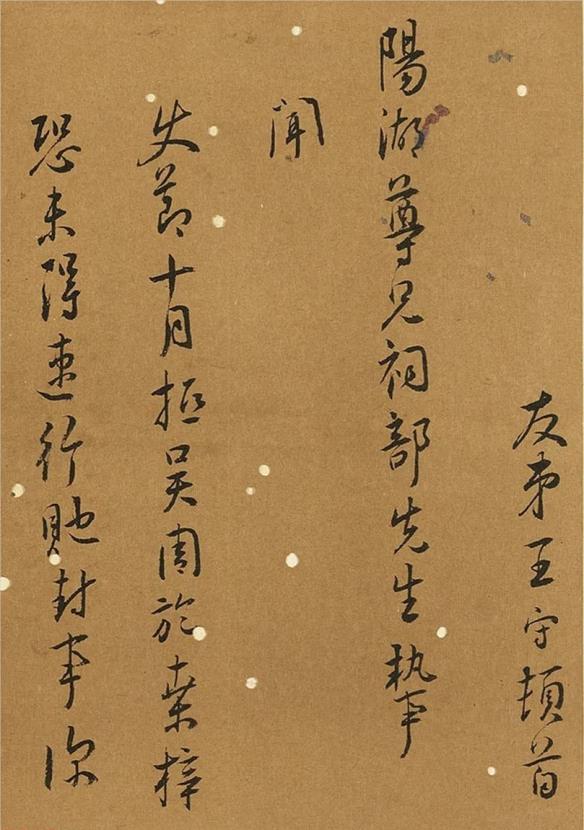 友弟王守頓首
陽湖尊兄祠部先生執事
聞
使節十月抵吳周於桑梓
恐未得速行貤封事深